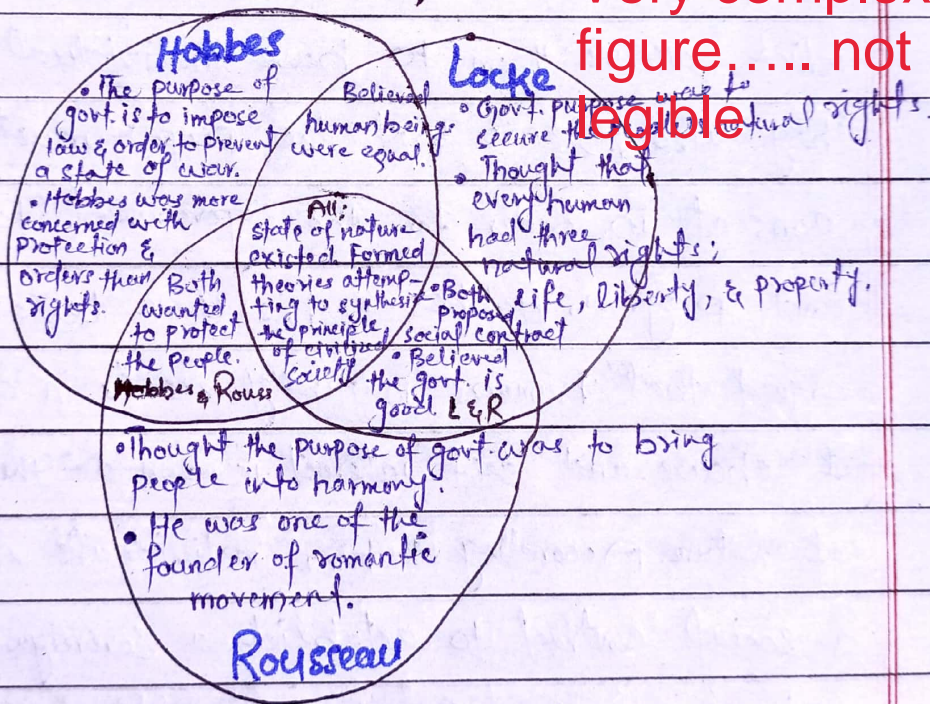 very complex
figure..... not
legible
Hobbes
• The purpose of
govt. is to impose
law & order to prevent
a state of war.
• Hobbes was more
concerned with
Protection &
orders than
rights.
Believed
human beings
were equal.
Locke
• Govt. purpose was to
secure the natural rights.
• Thought that
every human
had three
natural rights;
life, liberty, & property.
All:
state of nature
existed. Formed
theories attemp-
ting to synthesiz
the principle
of civilized
Society
Both
wanted
to protect
the people.
Hobbes & Rouss
• Both
proposed
social contract
• Believed
the govt. is
good L & R
• Thought the purpose of govt. was to bring
people into harmony.
• He was one of the
founder of romantic
movement.
Rousseau